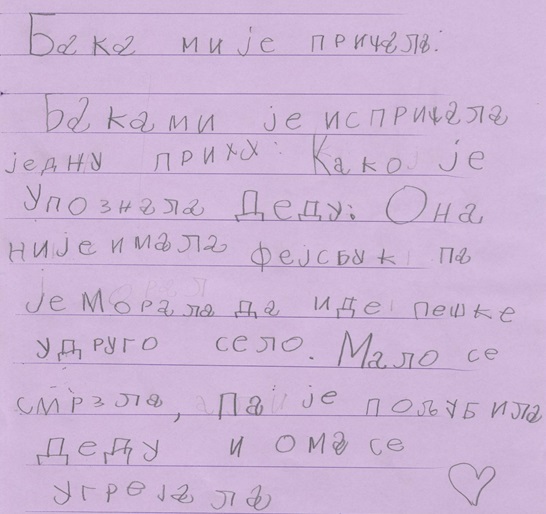 Бака ми је причала:
Бака ми је испричала
једну прихх: Како је
Упознала Деду: Она
није имала фејсбук па
је морала да иде пешке
у друго село. Мало се
смрзла, па је пољубила
Деду и ома се
угрејала